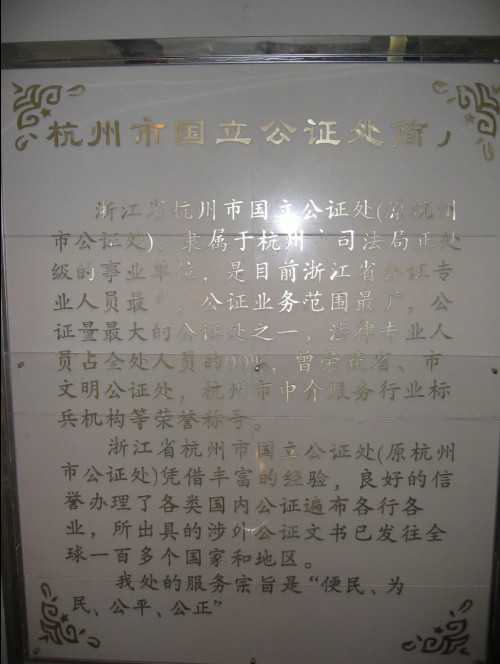 杭州市国立公证处简
浙江省杭州市国立公证处(原杭州
市公证处)，隶属于杭州 司法局正处
级的事业单位，是目前浙江省公证专
业人员最 ，公证业务范围最广，公
证量最大的公证处之一，法律专业人
员占全处人员的99%，曾荣获省、市
文明公证处，杭州市中介服务行业标
兵机构等荣誉称号。
浙江省杭州市国立公证处(原杭州
市公证处)凭借丰富的经验，良好的信
誉办理了各类国内公证遍布各行各
业，所出具的涉外公证文书已发往全
球一百多个国家和地区。
我处的服务宗旨是“便民、为
民、公平、公正”